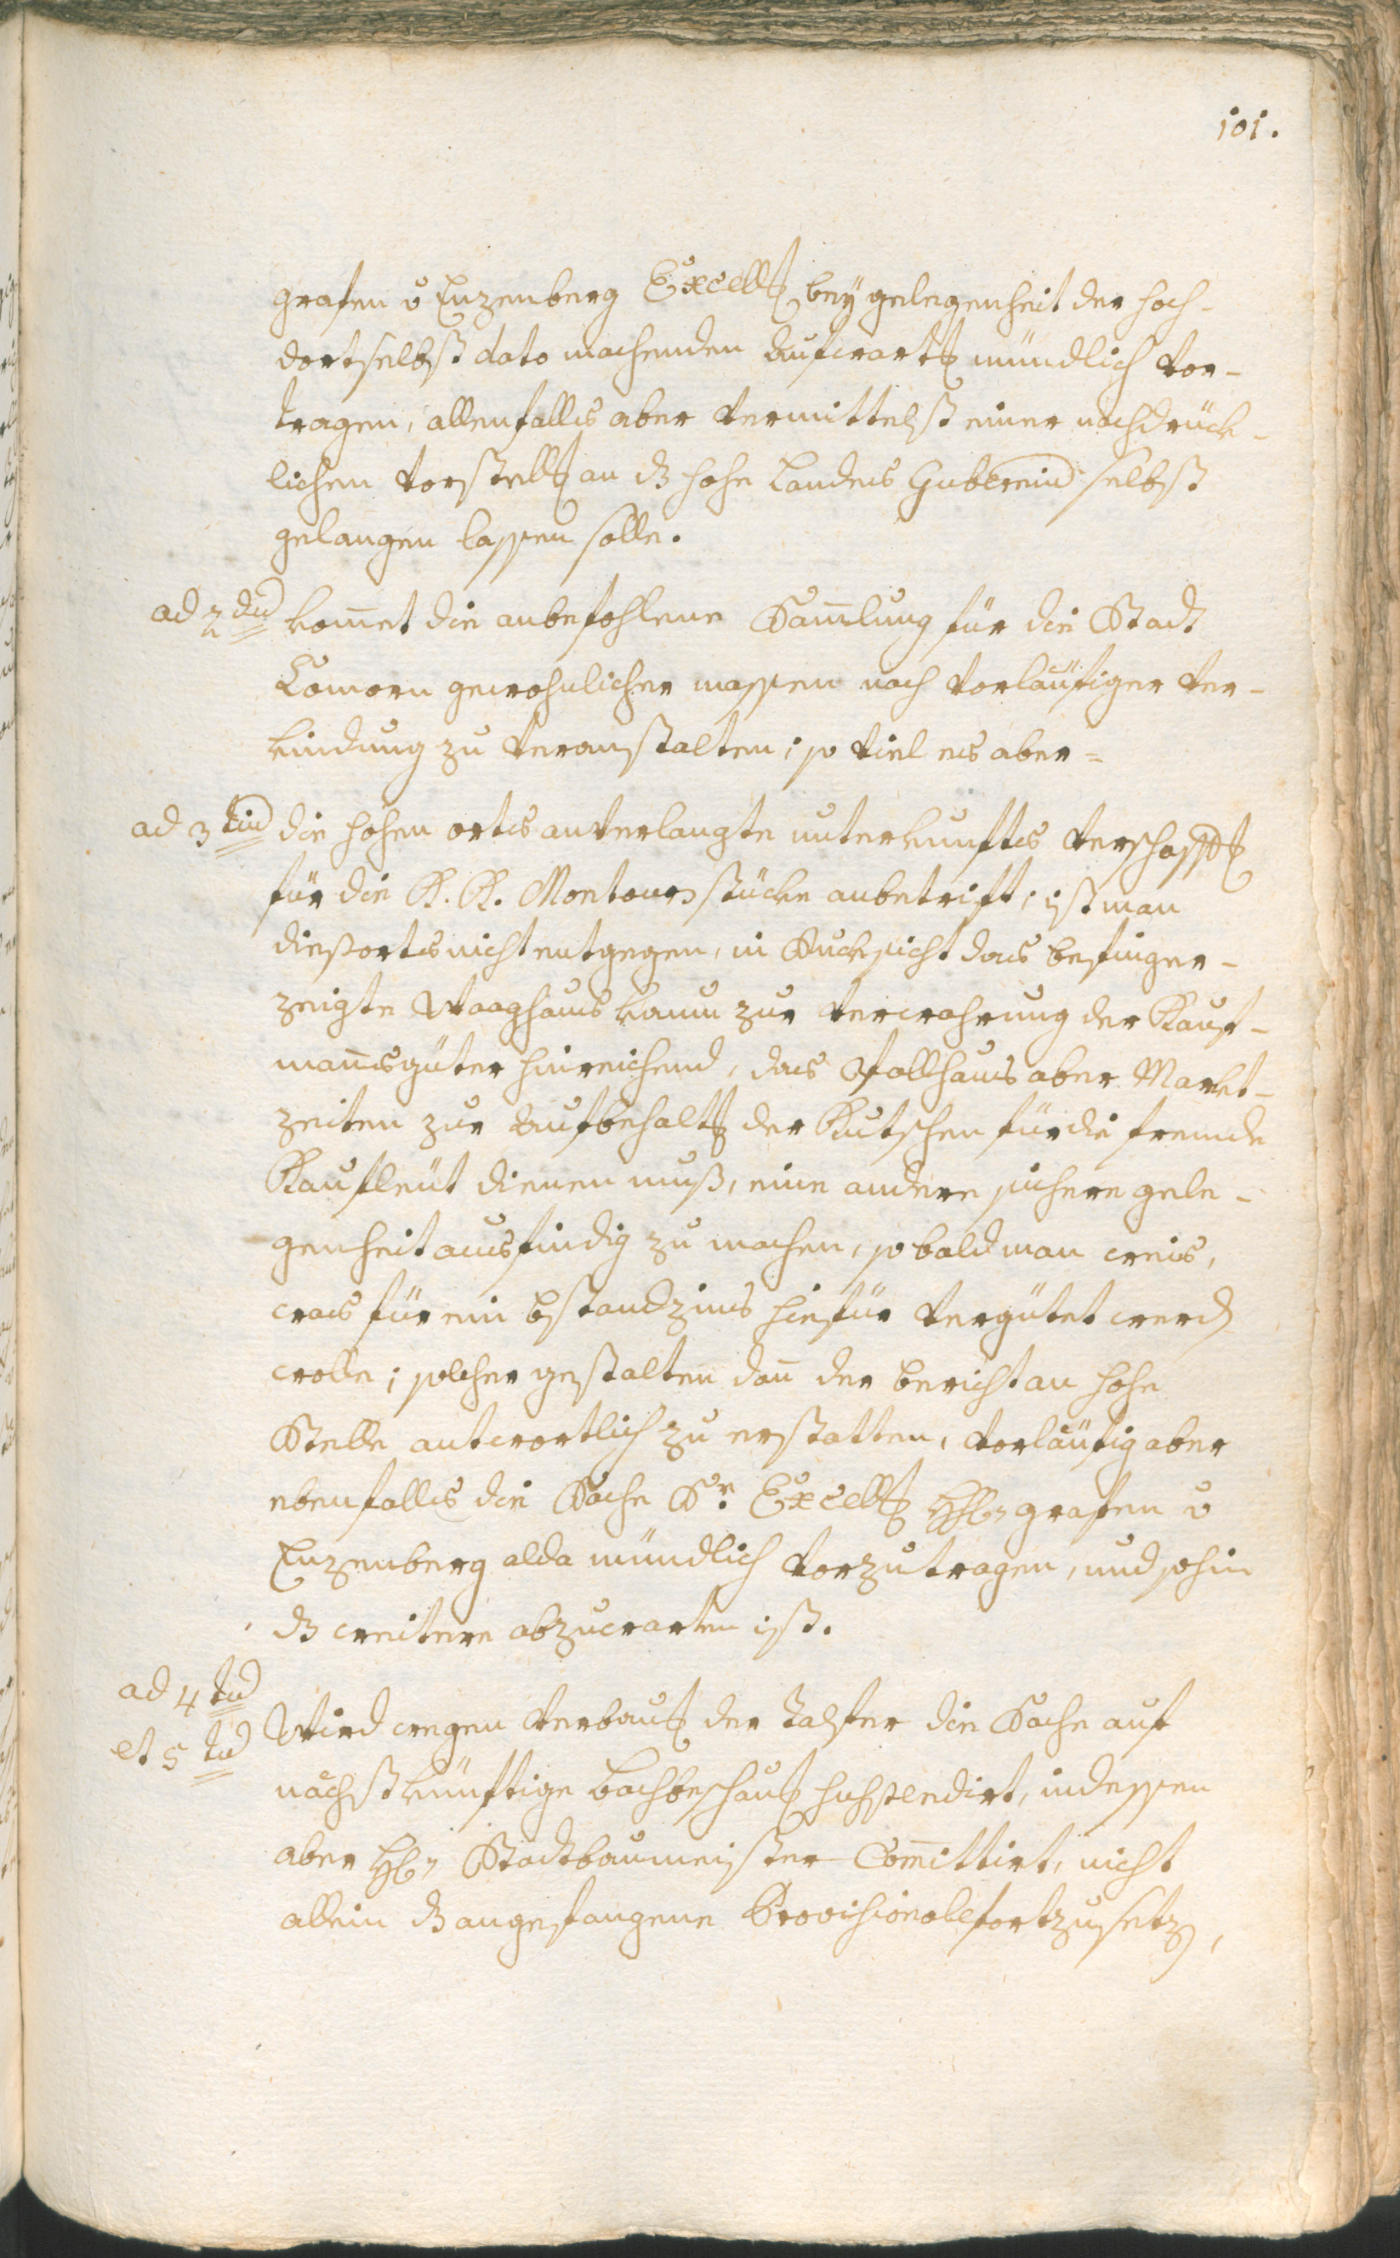 101.
grafen v Enzenberg Excell: bey gelegenheit der hoch-
dortselbst dato machenden Aufwart: mündlich vor-
tragen, allenfalls aber vermittelst einer nachdrück-
lichen vorstell: an dz hohe Landes Gubernium selbst
gelangen lassen solle.
ad 2dum kom̅et die anbefohlene Sam̅lung für die Stadt
Comorn gewohnlicher massen nach vorläufiger ver-
kündung zu veranstalten; so viel es aber=
ad 3tium die hohen orts anverlangte unterkunfts verschaff:
für die K. K. Montours stücke anbetrift; ist man
diesorts nicht entgegen, in Rucksicht das besinger-
zeigte Waaghaus kaum zur verwahrung der Kauf-
man̅sgüter hinreichend, das Ballhaus aber Markt-
zeiten zur Aufbehalt: der Kutschen für die fremde
Kaufleüt dienen muß, eine andere sichere gele-
genheit ausfindig zu machen, so bald man weis,
was für ein bstandzins hiefür vergütet werden
wolle; solcher gestalten dan̅ der bericht an hohe
Stelle antwortlich zu erstatten, vorläufig aber
ebenfalls die Sache Sr Excell: Hhl: grafen v
Enzenberg alda mündlich vorzutragen, und sohin
dz weitere abzuwarten ist.
ad 4tum
et 5tum Wird wegen verbau: der Talfer die Sache auf
nächstkünftige bachbeschau: suspendirt, indessen
aber Hl: Stadtbaumeister Com̅ittirt, nicht
allein dz angefangene Provisionale fortzusetzen,